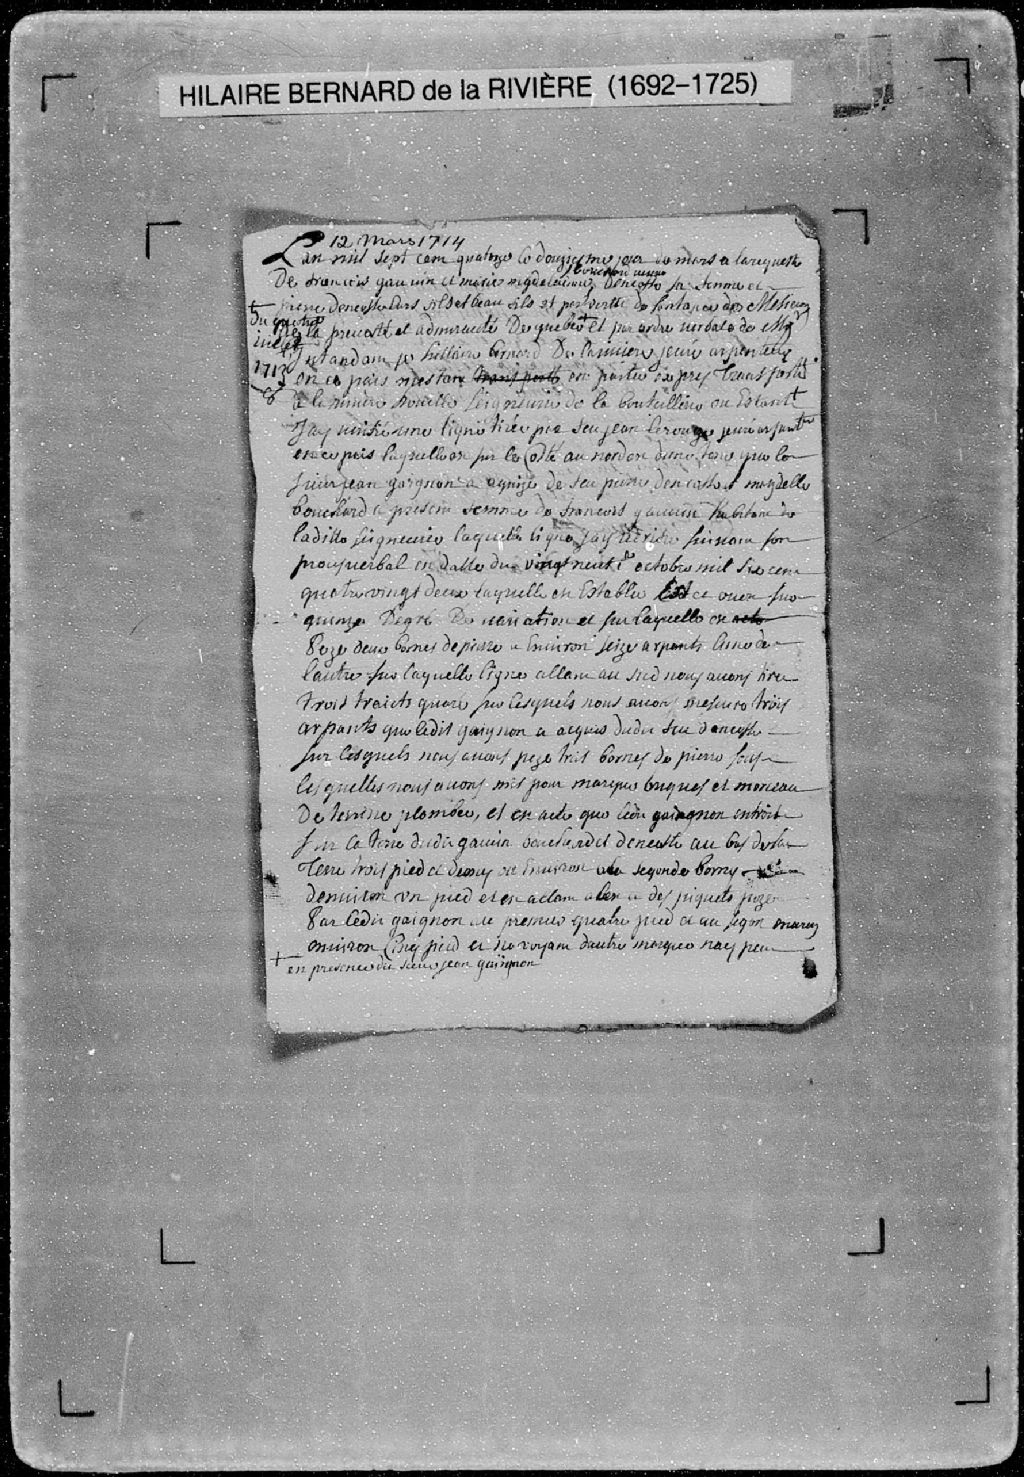 HILAIRE BERNARD de la RIVIÈRE (1692–1725)
12 Mars 1714
L'an mil sept cent quatorze le douziesme jour de mars a la requeste
De francois gauvin et marie magdelainne bouchard veuve denoste sa femme et
pierre denoste fils et beau fils et per vertu de sentance de Messieurs
+ du quatre
juillet
1713
de la prevosté et admirauté De quebec Et par ordre verbale de Mgr
Intandant je hillaire bernard De lariviere juré arpenteur
en ce pais mestant transporté en partie exprez transporté
a la riviere nouelle seigneurie de la bouteillerie ou Estant
Jay une ligne tirée par feu jean lerouge juré arpanteur
en ce pais laquelle est sur le Costé au nordest dune terre que le
sieur jean gaignon a aquize de feu pierre denoste et magdelle
bouchard a present femme de francois gauvin habitant de
laditte seigneurie laquelle ligne Jay suivant son
procez verbal en datte du vingt neuf octobre mil six cent
quatre vingt deux laquelle est Establie Est et ouest sur
quinze Degré De variation et sur laquelle
Poze deux bornes de pierre a Environ seize arpants Lune de
lautre sur laquelle ligne allant au sud nous avons tiré
trois traicts quaré sur lesquels nous avons mesuré trois
arpants que ledit gaignon a acquis dudit feu denoste
sur lesquels nous avons poze trois bornes de pierre sous
lesquelles nous avons mis pour marque briques et morceau
De terrine plombée, et en acte que ledit gaignon entroit
sur la terre dudit gauvin bouchard et denoste au bas de la
Terre trois pied et demy ou Environ a la segonde borne
denviron un pied et en allant a des piquets poze
Par ledit gaignon au premier quatre pied et au segon
environ Cinq pied et ne voyant dautre marque nay peu
+ en presence du sieur jean gaignon